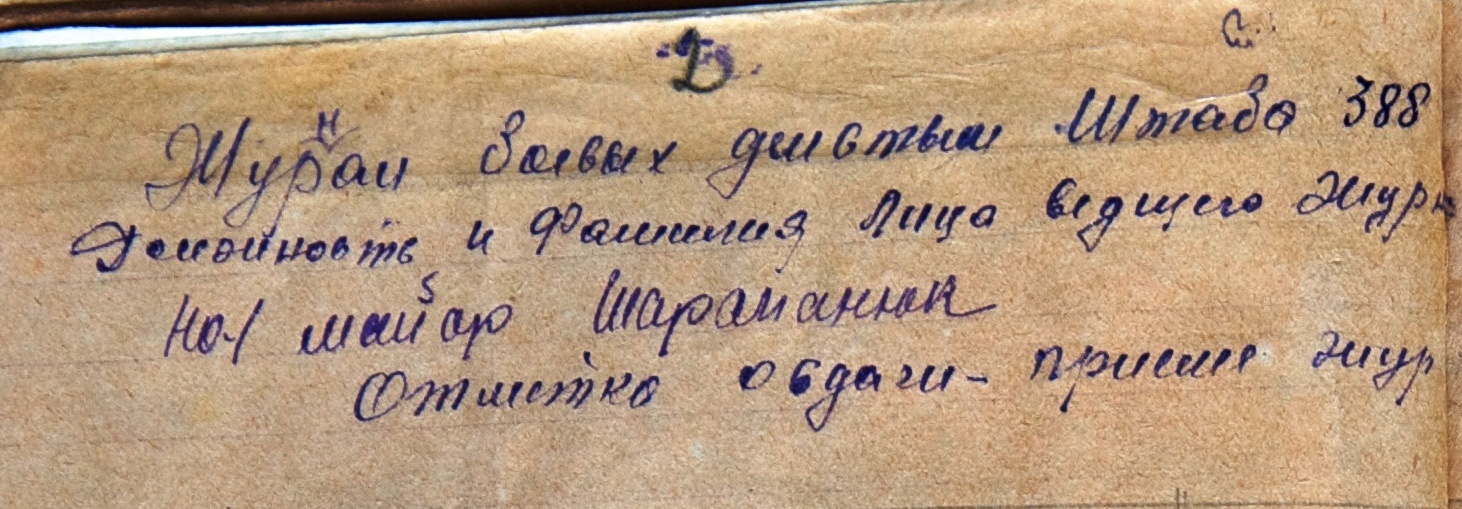 2
Журнал боевых действий Штаба 388
Должность и Фамилия Лица ведущего Журн
НО-1 майор Шараманюк
Отметка о сдачи- приеме жур